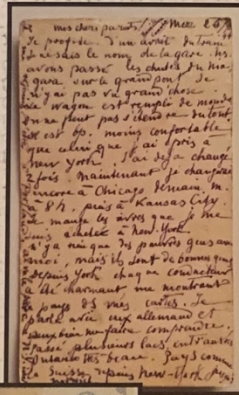 mes chers parents
Je profite d'un arrêt du train
Je ne sais le nom de la gare. ns
avons passé les chutes du Nia
gara sur le grand pont je
n'y ai pas vu grand chose.
Le wagon est rempli de monde
on ne peut pas s'étendre du tout,
il est bp. moins confortable
que celui que j'ai pris à
New York. J'ai déjà changé
2 fois maintenant je changerai
encore à Chicago demain m.
à 8 h. puis à Kansas City.
Je mange les vivres que je me
suis acheté à New-York.
n'y a rien que des pauvres gens avec
moi, mais ils sont de bonnes gens
depuis York chaque conducteur
a été charmant me montrant
le pays des mes cartes. Je
parle avec eux allemand et
peux bien me faire comprendre.
Passé plusieurs lacs, entr'autres
Ontario très beau. Pays comme
la Suisse depuis New-York